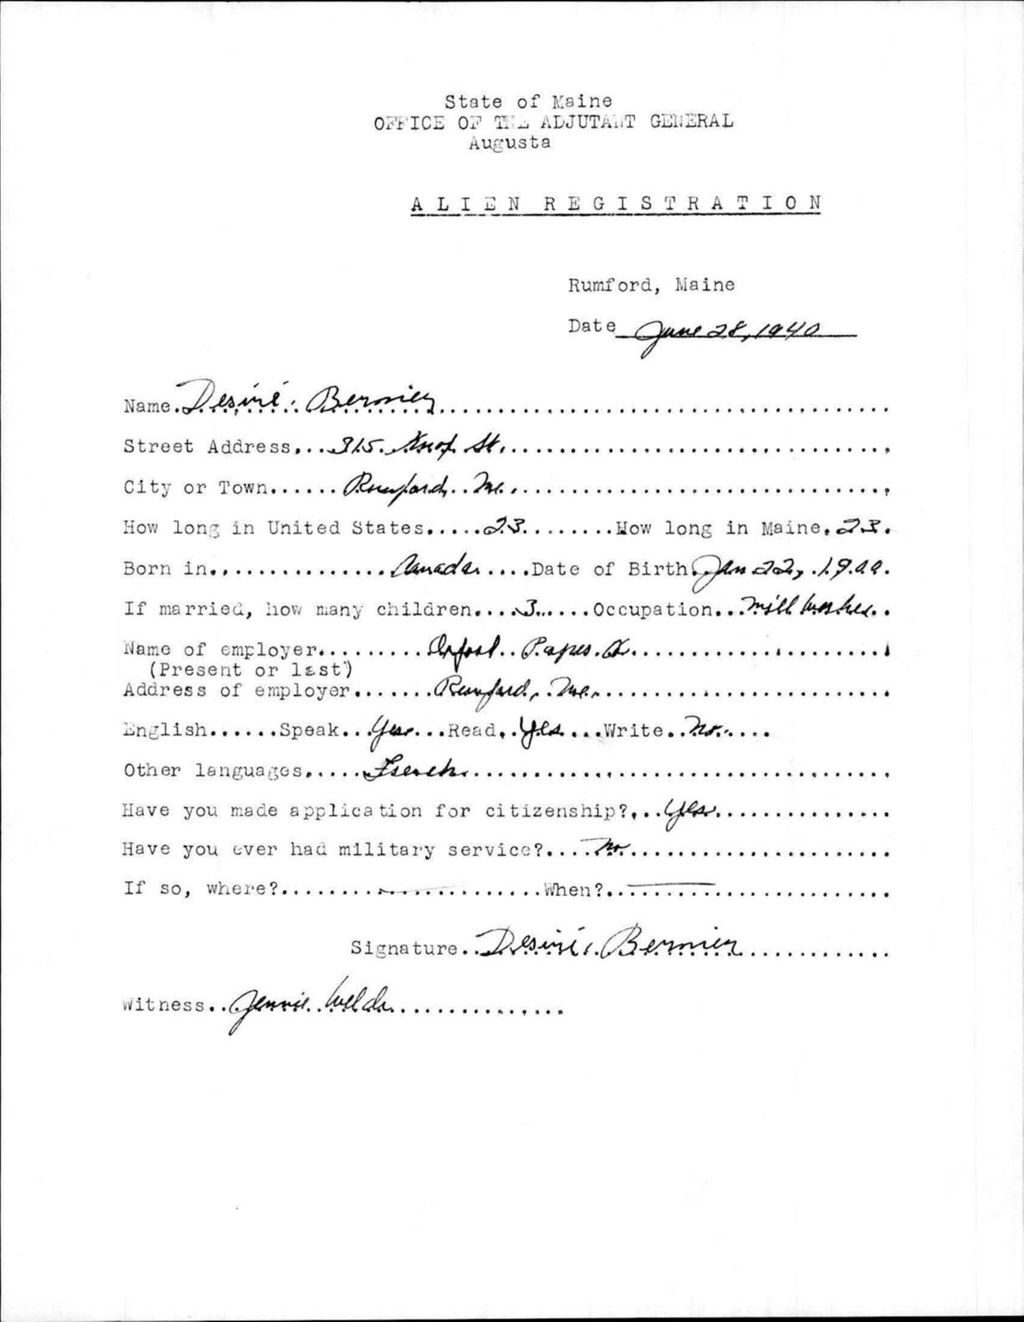 State of Maine
OFFICE OF THE ADJUTANT GENERAL
Augusta
ALIEN REGISTRATION
Rumford, Maine
Date June 28, 1940
Name Desiré Bernier
Street Address 315 Knox St.
City or Town Rumford, Me.
How long in United States 23 How long in Maine 23
Born in Canada Date of Birth Jan 22, 1900
If married, how many children 3 Occupation Mill Worker
Name of employer Oxford Paper Co
(Present or last)
Address of employer Rumford, Me.
English Speak Yes Read Yes Write No
Other languages French
Have you made application for citizenship? Yes
Have you ever had military service? No
If so, where? When?
Signature Desiré Bernier
Witness Jennie Welch